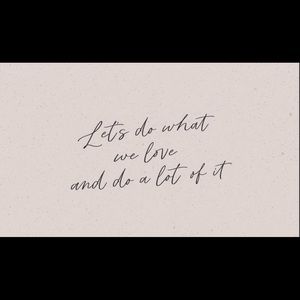 Let's do what
we love
and do a lot of it